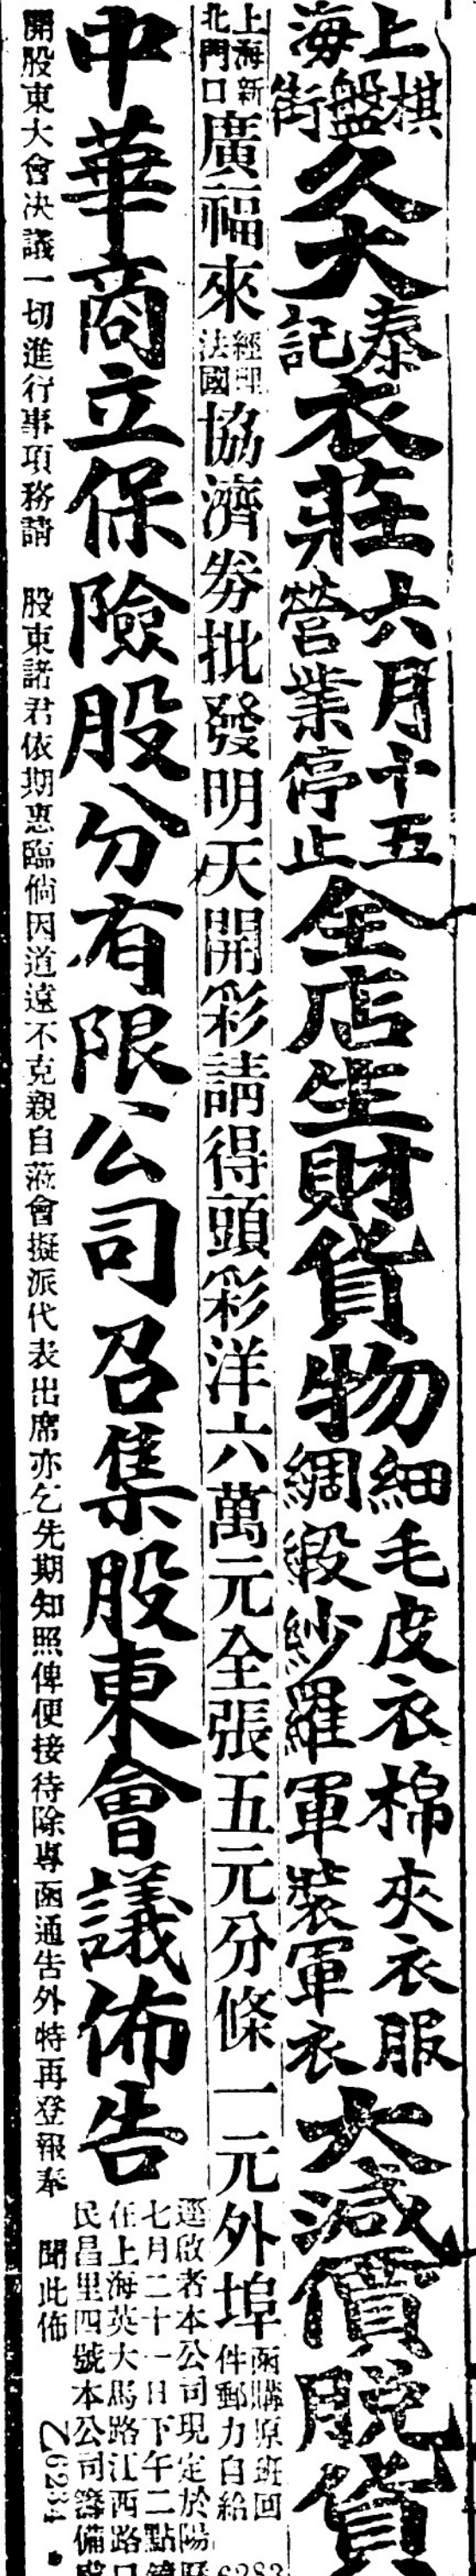 上海棋盤街久大泰記衣莊六月十五營業停止全店生財貨物細毛皮衣棉夾衣服綢緞紗羅軍裝軍衣大減價脫貨
上海新北門口廣福來經理法國協濟券批發明天開彩請得頭彩洋六萬元全張五元分條一元外埠函購原班回件郵力自給 6283
中華商立保險股分有限公司召集股東會議佈告
逕啟者本公司現定於陽曆
七月二十一日下午二點鐘
在上海英大馬路江西路口
民昌里四號本公司籌備處
開股東大會決議一切進行事項務請 股東諸君依期惠臨倘因道遠不克親自蒞會擬派代表出席亦乞先期知照俾便接待除專函通告外特再登報奉 聞此佈 Z6234